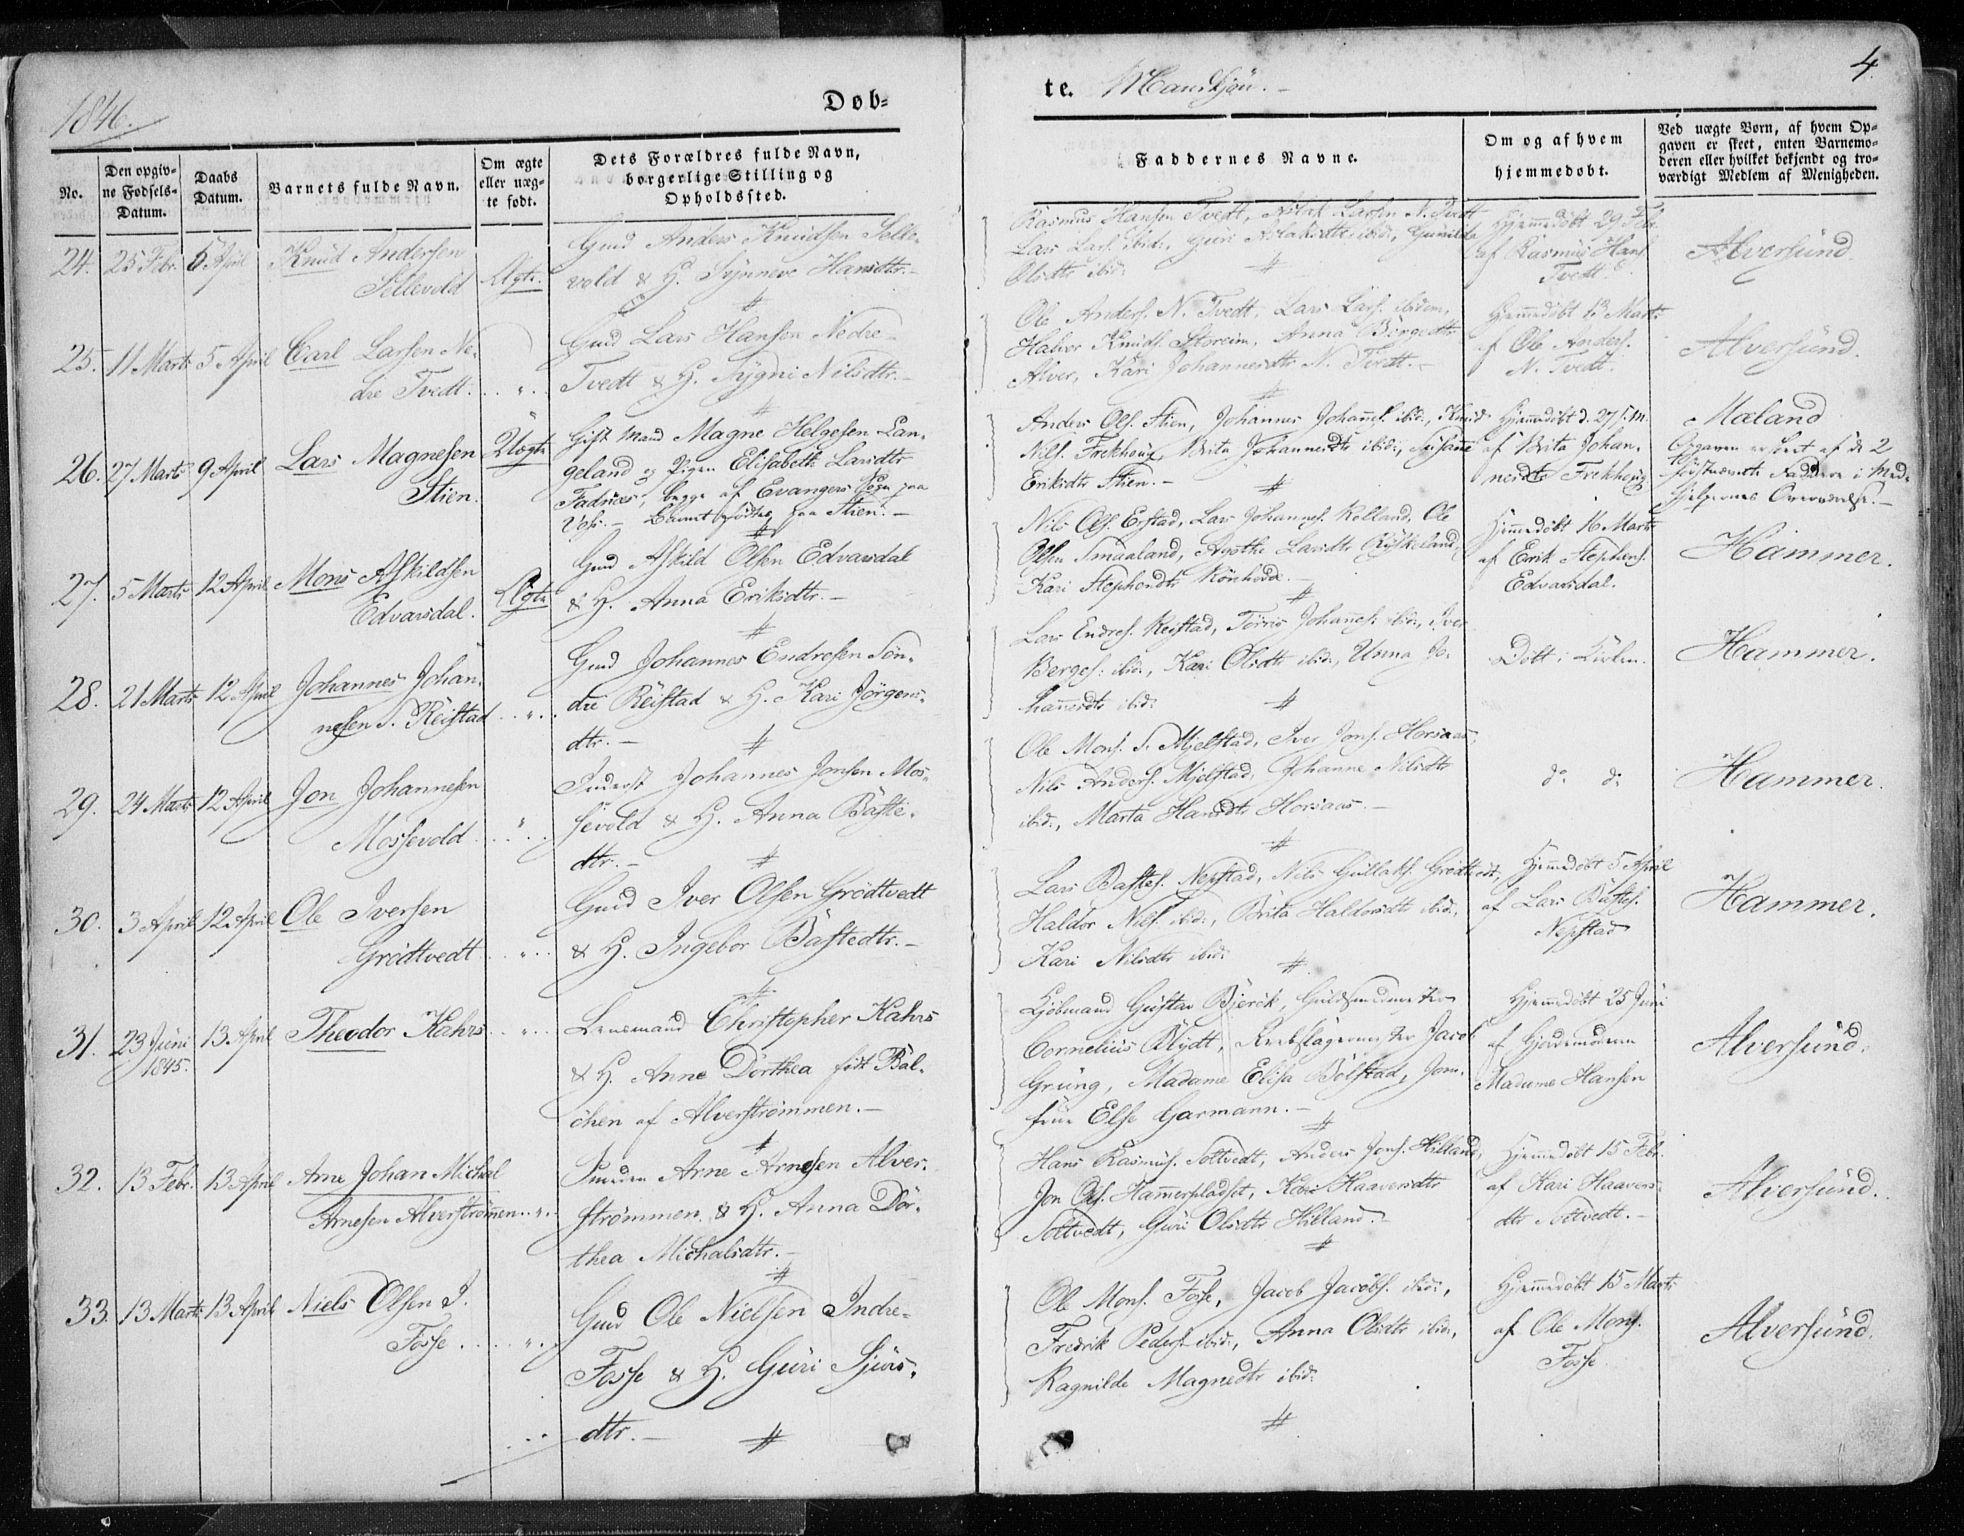 1846.
Døb-
te. Mandkjøn.
4
No.
Den opgiv-
ne Fødsels-
Datum.
Daabs
Datum.
Barnets fulde Navn.
Om ægte
eller uæg-
te født.
Dets Forældres fulde Navn,
borgerlige Stilling og
Opholdssted.
Faddernes Navne.
Om og af hvem
hjemmedøbt.
Ved uægte Børn, af hvem Op-
gaven er skeet, enten Barnemo-
deren eller hvilket bekjendt og tro-
værdigt Medlem af Menigheden.
24. 25 Febr. 5 April Knud Andersen
Sellevold Ægte.
Gmd Anders Knudsen Selle-
vold & H. Synneve Hansdtr.
Rasmus Hansen Tvedt, Aslak Larsen N. Tvedt
Lars Lars. ibid., Guri Aslaksdtr ibid., Gunilda
Olsdtr ibid.
Hjemmedøbt 29 Febr.
af Rasmus Hans.
Tvedt
Alversund.
25. 11 Marts 5 April Carl Larsen Ne-
dre Tvedt. "
Gmd Lars Hansen Nedre-
Tvedt & H. Sygni Nilsdtr.
Ole Anders. N. Tvedt, Lars Lars. ibidem,
Halvor Knuds. Storeim, Anna Børgedtr
Alver, Kari Johannesdtr N. Tvedt.
Hjemmedøbt 13 Marts
af Ole Anders.
N. Tvedt.
Alversund.
26. 27 Marts 9 April Lars Magnesen
Stien. Uægte
Gift Mand Magne Helgesen Lan-
geland og Pigen Elisabeth Larsdtr
Fadnæs, begge af Evangers Sogn paa
Voss. Barnet født paa Stien.
Anders Ols. Stien, Johannes Johans. ibid., Knud
Nils. Frekhoug, Brita Johannesdtr ibid., Susanne
Eriksdtr Stien.
Hjemmedøbt d. 27 s. M.
af Brita Johan-
nesdtr Frekhoug
Mæland
Opgaven er skeet af de 2
førstnævnte Faddere i Med-
hjelpernes Overværelse.
27. 5 Marts 12 April Mons Askildsen
Edvarsdal. Ægte
Gmd Askild Olsen Edvarsdal
& H. Anna Eriksdtr.
Nils Ols. Erstad, Lars Johannes. Rolland, Ole
Olsen Smaaland, Agathe Larsdtr
Kari Stephensdtr Rønhovde.
Hjemmedøbt 16 Marts
af Erik Stephens.
Edvarsdal.
Hammer.
28. 21 Marts 12 April Johannes Johan-
nesen S. Reistad "
Gmd Johannes Endresen Søn-
dre Reistad & H. Kari Jørgens-
dtr.
Lars Endres. Reistad, Torris Johannes. ibid., Iver
Børges. ibid., Kari Olsdtr ibid., Unna Jo-
hannesdtr ibid.
Døbt i Kirken.
Hammer.
29. 24 Marts 12 April Jon Johannesen
Mossevold "
Inderst Johannes Jonsen Mos-
sevold & H. Anna Baste-
dtr.
Ole Mons. S. Mjelstad, Iver Jons. Horsaas,
Nils Anders. Mjelstad, Johanne Nilsdtr
ibid., Marta Hansdtr Horsaas.
do do
Hammer.
30. 3 April 12 April Ole Iversen
Grødtvedt "
Gmd Iver Olsen Grødtvedt
& H. Ingebor Bastedtr.
Lars Bastes. Nepstad, Nils Gullaks. Grødtvedt,
Haldor Nils. ibid., Brita Haldorsdtr ibid.,
Kari Nilsdtr ibid.
Hjemmedøbt 5 April
af Lars Bastes.
Nepstad
Hammer.
31. 23 Juni
1845. 13. April Theodor Kahrs "
Lensmand Christopher Kahrs
& H. Anne Dorthea født Bal-
chen af Alverstrømmen.
Kjøbmand Gustav Bjerck, Guldsmedmester
Cornelius Blydt, Rebslagermester Jacob
Grung, Madame Elisa Bølstad, Jom-
frue Else Garmann.
Hjemmedøbt 25 Juni
af Gjordemoderen
Madame Hansen
Alversund.
32. 13 Febr. 13 April Arne Johan Michal
Arnesen Alverstrømmen "
Smeden Arne Arnesen Alver-
strømmen & H. Anna Dor-
thea Michalsdtr.
Hans Rasmus. Toltvedt, Anders Jons. Hilland,
Jon Ols. Hammerpladset, Kari Haaversdtr
Toltvedt, Guri Olsdtr Hilland.
Hjemmedøbt 15 Febr.
af Kari Haavers-
dtr Toltvedt.
Alversund.
33. 13 Marts 13 April Niels Olsen I.
Fosse "
Gmd Ole Nielsen Indre-
Fosse & H. Guri Sjurs-
dtr.
Ole Mons. Fosse, Jacob Jacobs. ibid.,
Fredrik Peders. ibid., Anna Olsdtr ibid.,
Ragnilde Magnedtr ibid.
Hjemmedøbt 15 Marts
af Ole Mons.
Fosse
Alversund.